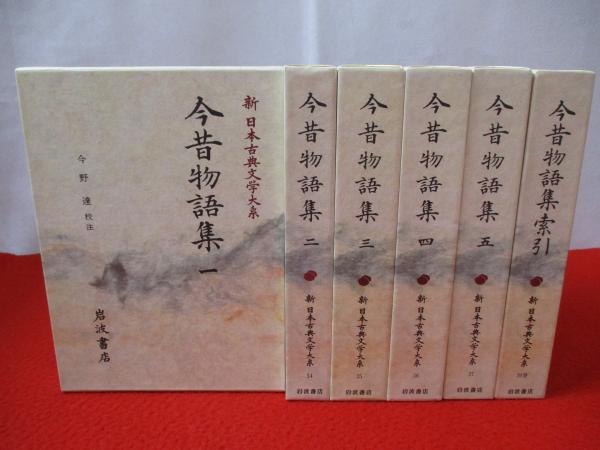 新 日本古典文学大系
今昔物語集 一
今野 達 校注
岩波書店
今昔物語集 二
新 日本古典文学大系
34
岩波書店
今昔物語集 三
新 日本古典文学大系
35
岩波書店
今昔物語集 四
新 日本古典文学大系
36
岩波書店
今昔物語集 五
新 日本古典文学大系
37
岩波書店
今昔物語集 索引
新 日本古典文学大系
岩波書店